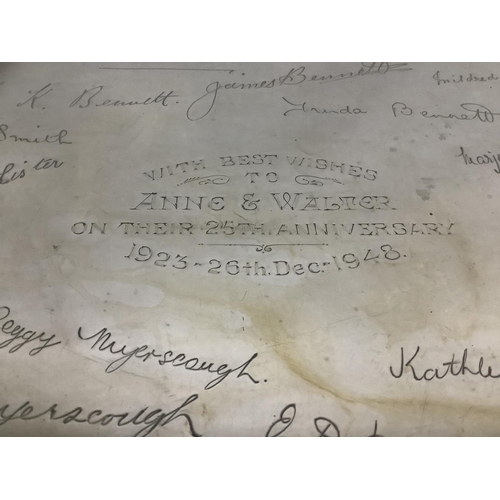 K. Bennett. James Bennett Mildred
Smith Linda Bennett
Lister Marj
WITH BEST WISHES
TO
ANNE & WALTER
ON THEIR 25TH. ANNIVERSARY
1923-26th. Dec.-1948.
Peggy Myerscough. Kathle
yerscough